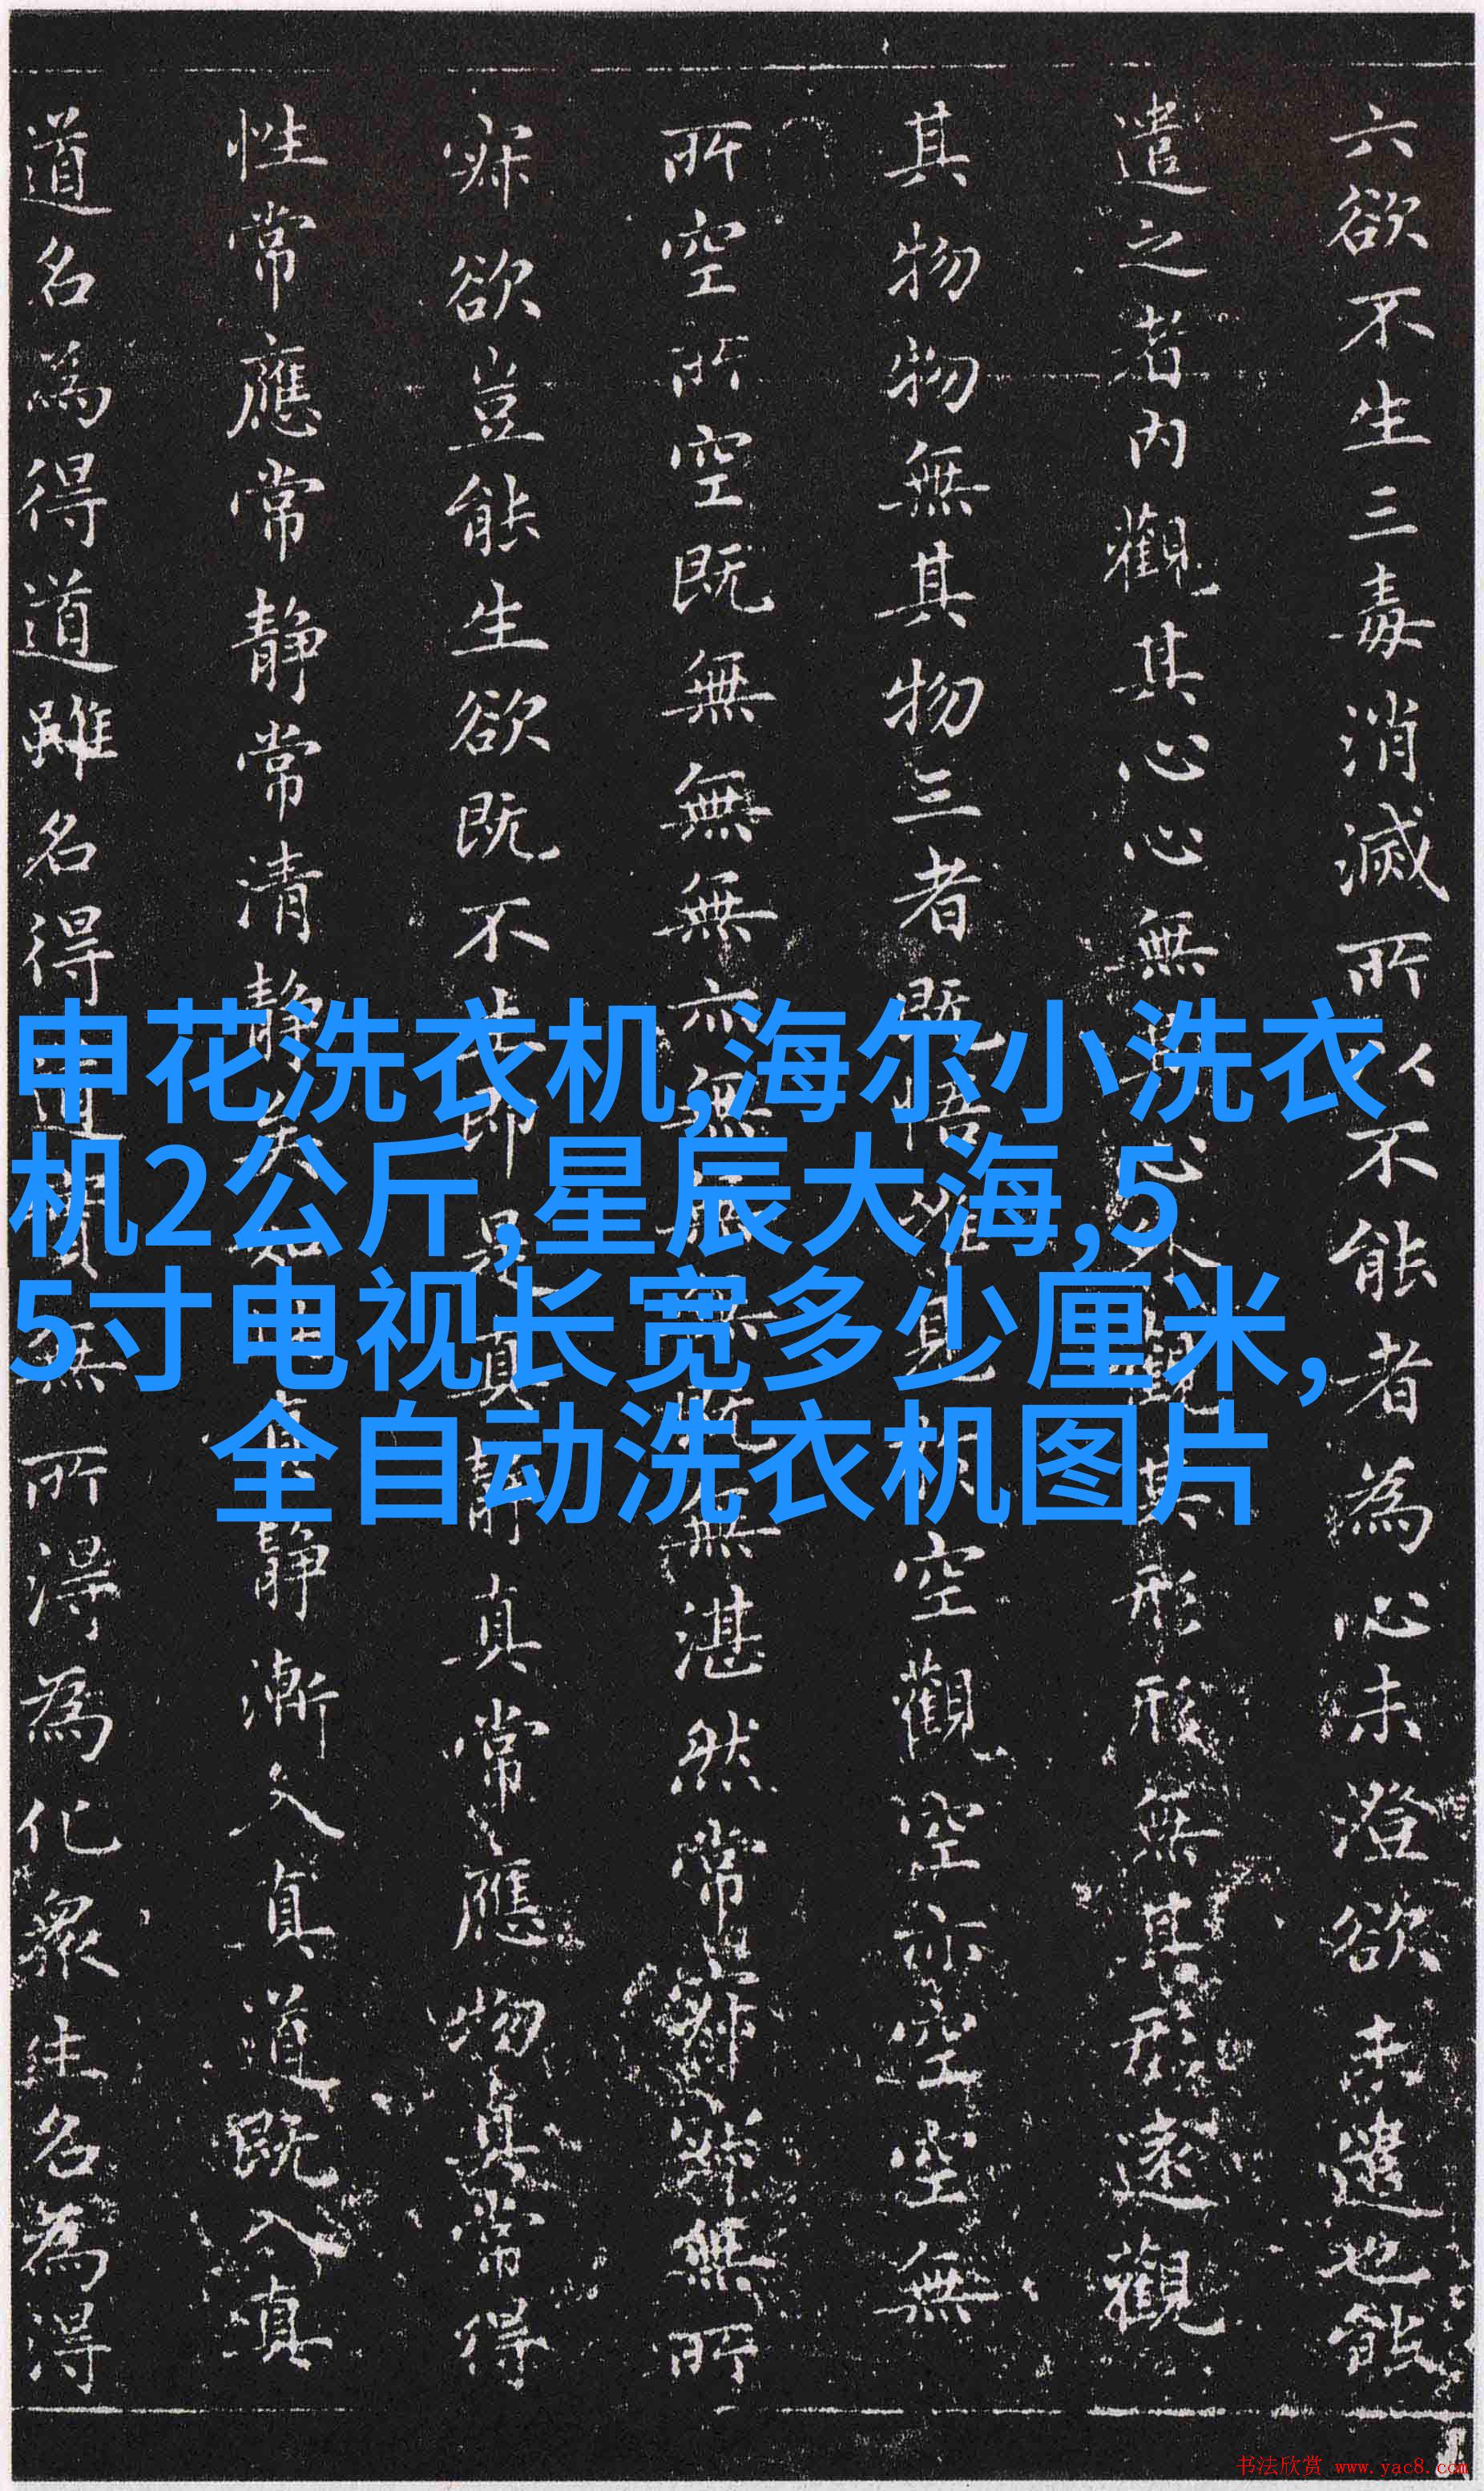 六欲不生三毒消滅所以不能者為心未澄欲未遣也能
遣之者內觀其心心無其心外觀其形形無其形遠觀
其物物無其物三者既悟唯見於空觀空亦空空無
所空所空既無無無亦無無無既無湛然常寂寂無所
寂欲豈能生欲既不生即是真静真常應物真常得
性常應常静常清静矣如此真静漸入真道既入真
道名為得道雖名得道實無所得為化衆生名為得
申花洗衣机,海尔小洗衣
机2公斤,星辰大海,5
5寸电视长宽多少厘米,
全自动洗衣机图片
书法欣赏 www.yac8.com